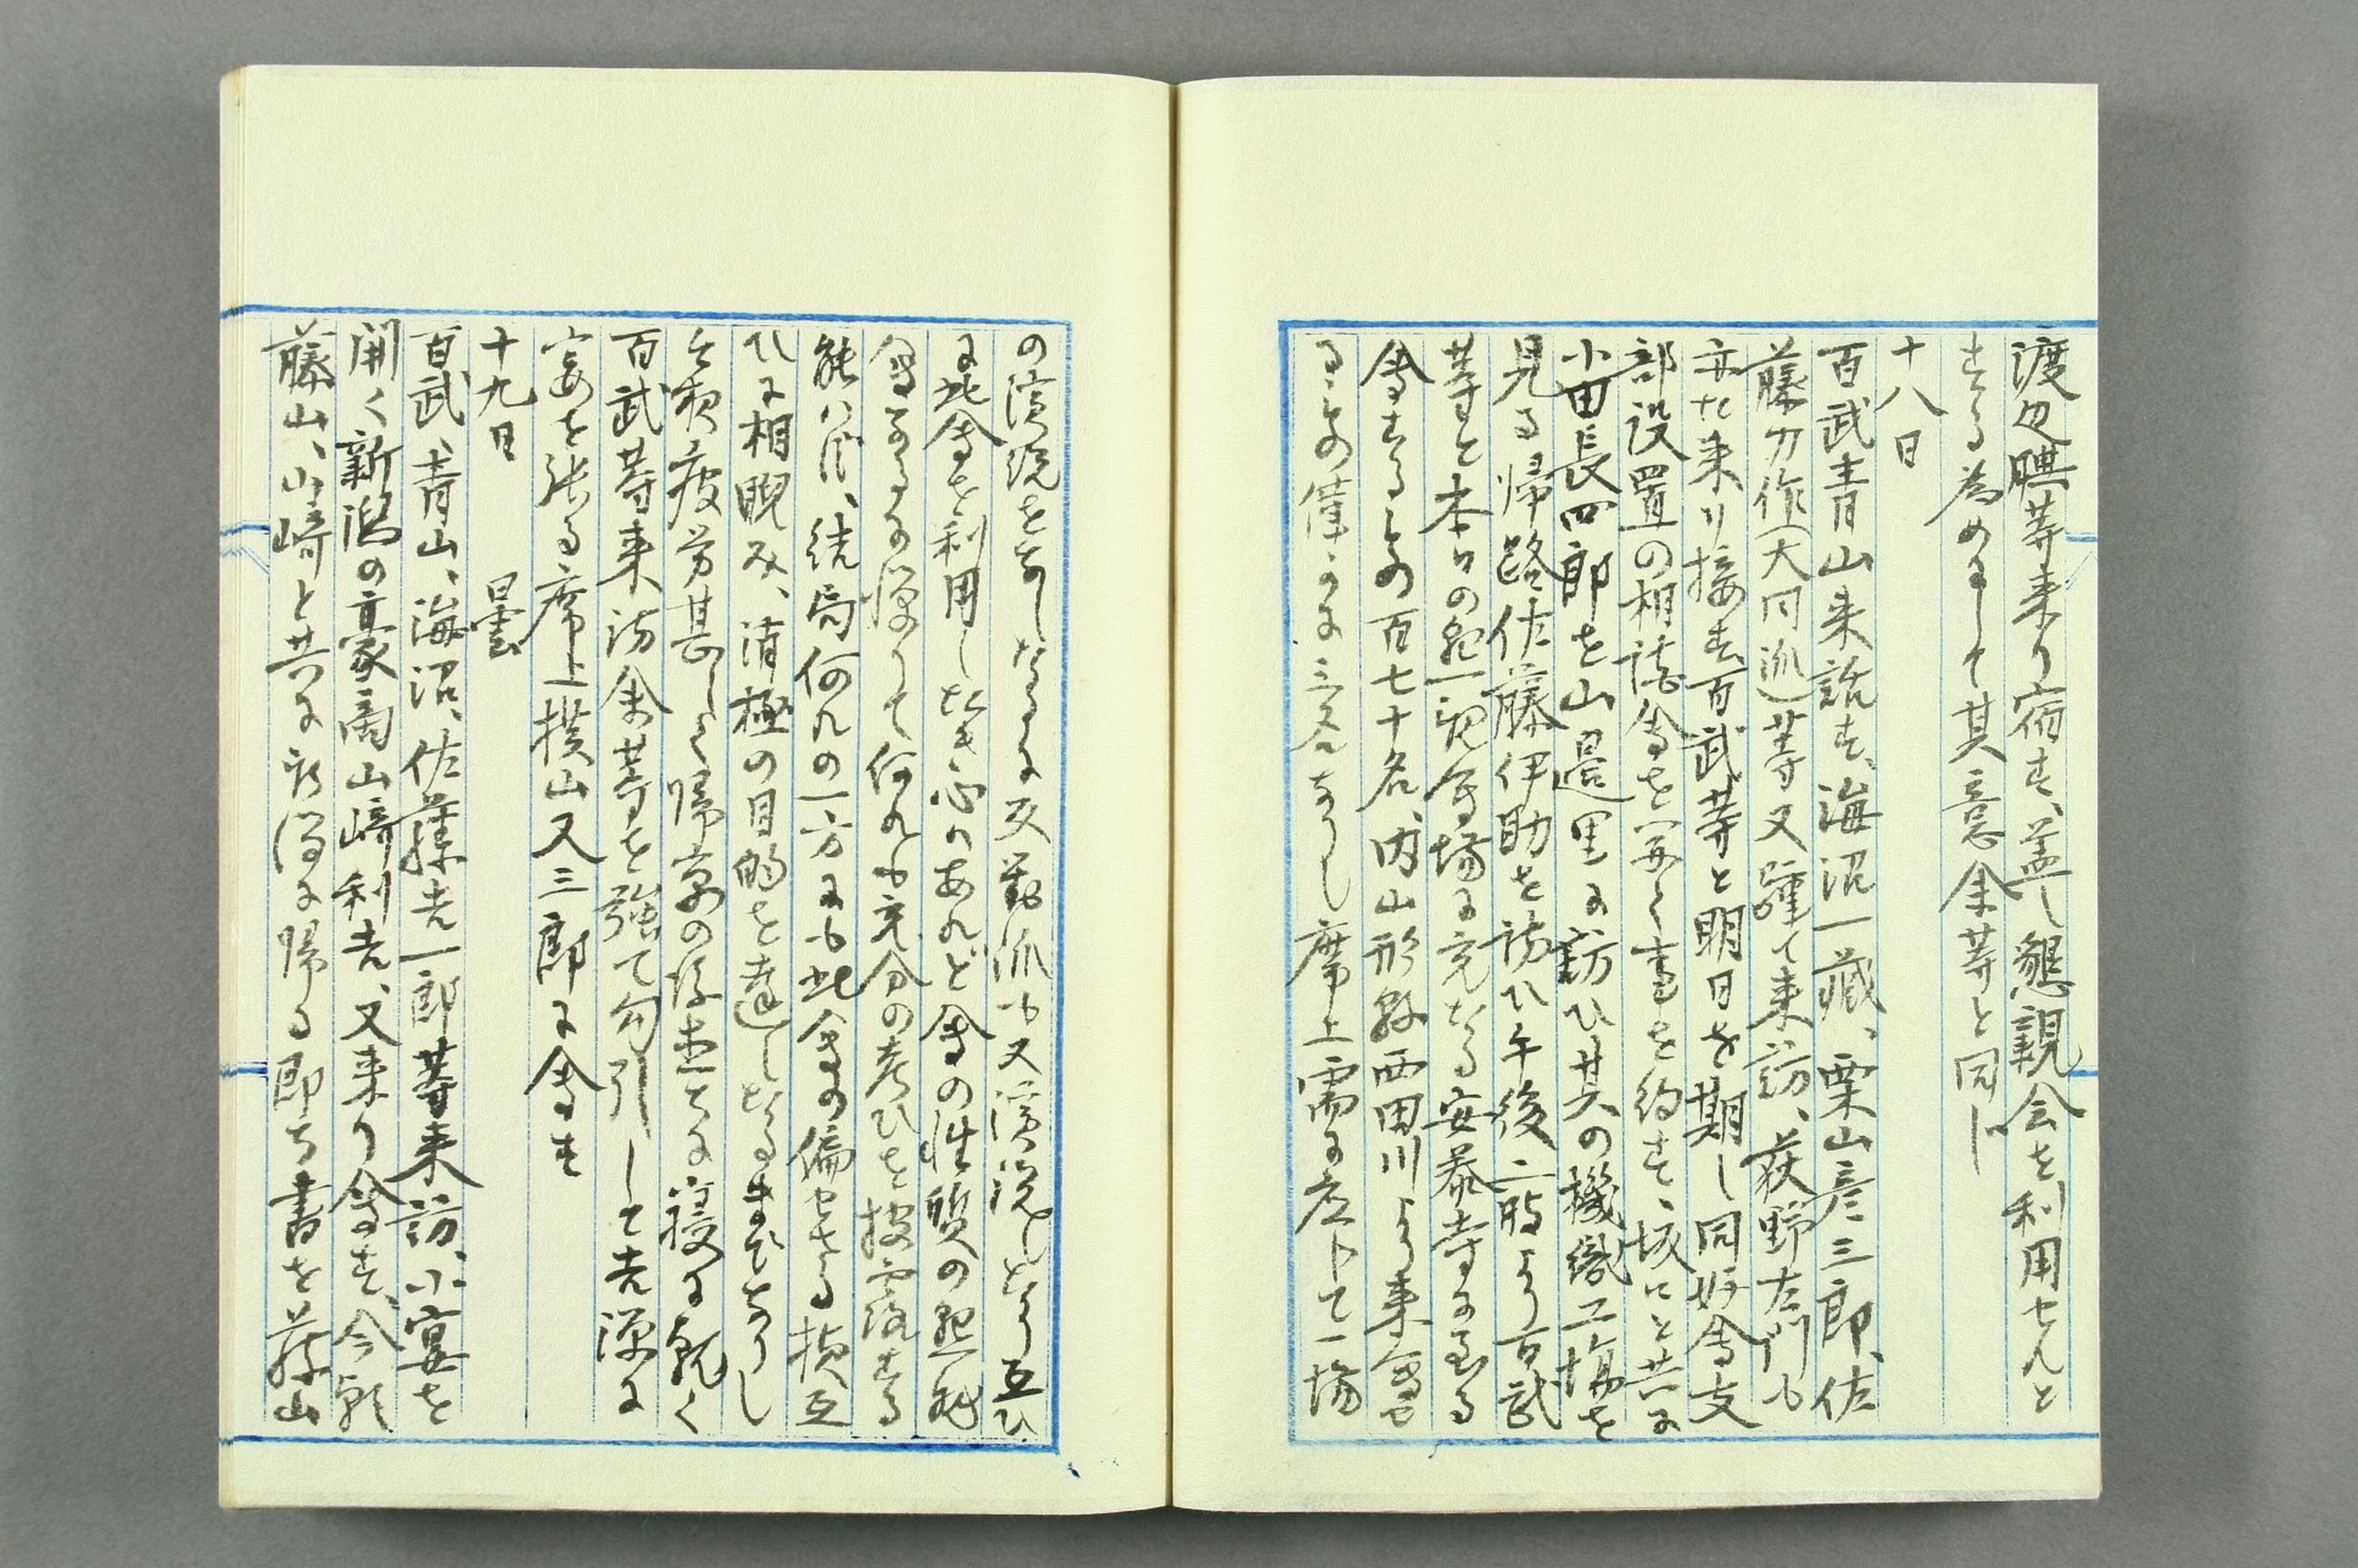 渡辺腆等来り宿す、蓋し懇親会を利用せんと
する為めにして其意余等と同じ
十八日
百武青山来訪す、海沼一蔵、栗山彦三郎、佐
藤力作（大同派）等又踵て来訪、荻野左門も
亦た来り接す、百武等と明日を期し同好会支
部設置の相談会を開く事を約す、坂口と共に
小田長四郎を山辺里に訪ひ其の機織工場を
見る帰路佐藤伊助を訪ひ午後二時より百武
等と本日の懇親会場に充たる安泰寺に至る
会するもの百七十名、内山形県西田川より来会せ
るもの僅かに三名なりし席上需に応して一場
の演説をなしたるに改進派も又演説したり互ひ
に此会を利用し度き心のあれど会の性質の懇親
会なるを憚りて何れも充分の考ひを披露する
能はず、結局何れの一方にも此会の偏せさる様互
ひに相睨み、消極の目的を達したるまでなりし
今夜疲労甚しく帰京の後直とに寝に就く
百武等来訪余等を強て勾引して吉源に
宴を張る席上撲山又三郎に会す
十九日　曇
百武、青山、海沼、佐藤吉一郎等来訪、小宴を
開く新潟の豪商山崎利吉、又来り会す、今朝
藤山、山崎と共に新潟に帰る即ち書を藤山